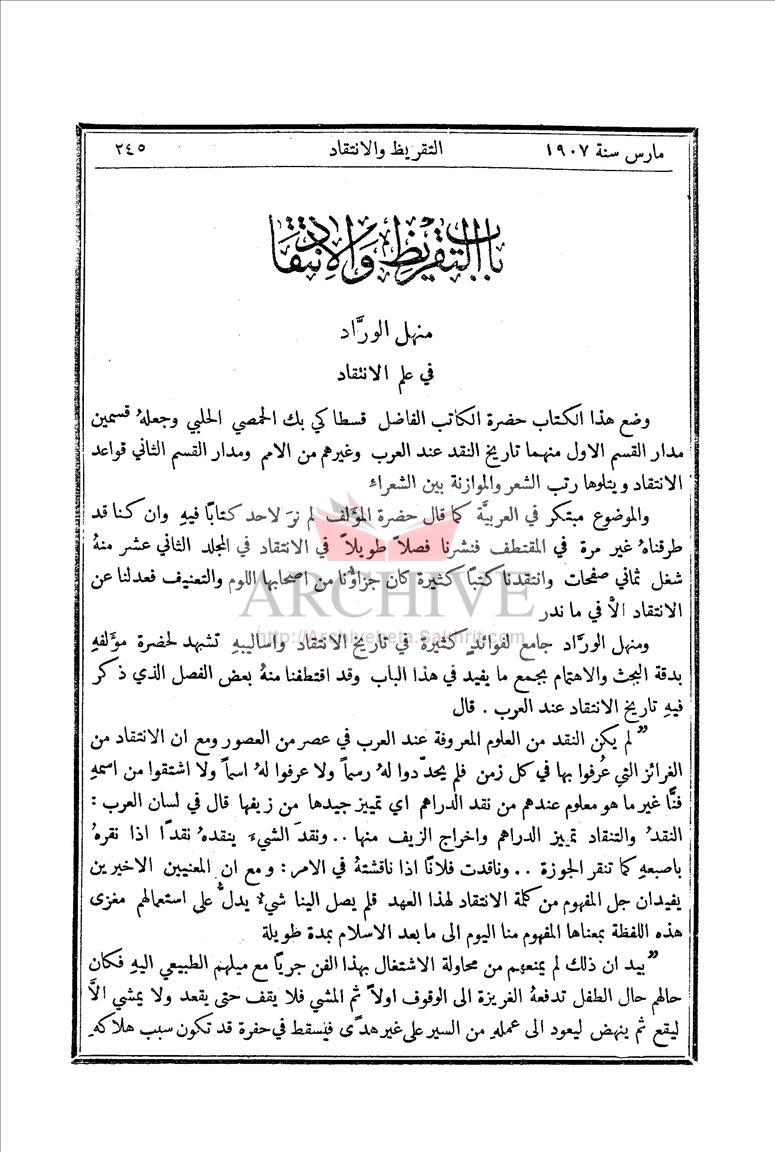 مارس سنة ١٩٠٧
التقريظ والانتقاد
٢٤٥
باب التقريظ والانتقاد
منهل الورَّاد
في علم الانتقاد
وضع هذا الكتاب حضرة الكاتب الفاضل قسطاكي بك الحمصي الحلبي وجعلهُ قسمين
مدار القسم الاول منهما تاريخ النقد عند العرب وغيرهم من الامم ومدار القسم الثاني قواعد
الانتقاد ويتلوها رتب الشعر والموازنة بين الشعراء
والموضوع مبتكر في العربيَّة كما قال حضرة المؤَلف لم نرَ لاحد كتابًا فيهِ وان كنا قد
طرقناهُ غير مرة في المقتطف فنشرنا فصلاً طويلاً في الانتقاد في المجلد الثاني عشر منهُ
شغل ثماني صفحات وانتقدنا كتبًا كثيرة كان جزاؤُنا من اصحابها اللوم والتعنيف فعدلنا عن
الانتقاد الاَّ في ما ندر
ARCHIVE
http://Archivebeta.Sakhrit.com
ومنهل الورَّاد جامع لفوائد كثيرة في تاريخ الانتقاد واساليبهِ تشهد لحضرة مؤَلفهِ
بدقة البحث والاهتمام بجمع ما يفيد في هذا الباب وقد اقتطفنا منهُ بعض الفصل الذي ذكر
فيهِ تاريخ الانتقاد عند العرب . قال
” لم يكن النقد من العلوم المعروفة عند العرب في عصر من العصور ومع ان الانتقاد من
الغرائز التي عُرفوا بها في كل زمن فلم يحدّدوا لهُ رسماً ولا عرفوا لهُ اسماً ولا اشتقوا من اسمهِ
فنًّا غير ما هو معلوم عندهم من نقد الدراهم اي تمييز جيدها من زيفها قال في لسان العرب :
النقدُ والتنقاد تمييز الدراهم واخراج الزيف منها . . ونقدَ الشيءَ ينقدهُ نقدًا اذا نقرهُ
باصبعهِ كما تنقر الجوزة . . وناقدت فلانًا اذا ناقشتهُ في الامر : ومع ان المعنيين الاخيرين
يفيدان جل المفهوم من كلمة الانتقاد لهذا العهد فلم يصل الينا شيءٌ يدلُّ على استعمالهم مغزى
هذه اللفظة بمعناها المفهوم منا اليوم الى ما بعد الاسلام بمدة طويلة
” بيد ان ذلك لم يمنعهم من محاولة الاشتغال بهذا الفن جريًا مع ميلهم الطبيعي اليهِ فكان
حالهم حال الطفل تدفعهُ الغريزة الى الوقوف اولاً ثم المشي فلا يقف حتى يقعد ولا يمشي الاَّ
ليقع ثم ينهض ليعود الى عملهِ من السير على غير هدًى فيسقط في حفرة قد تكون سبب هلاكهِ